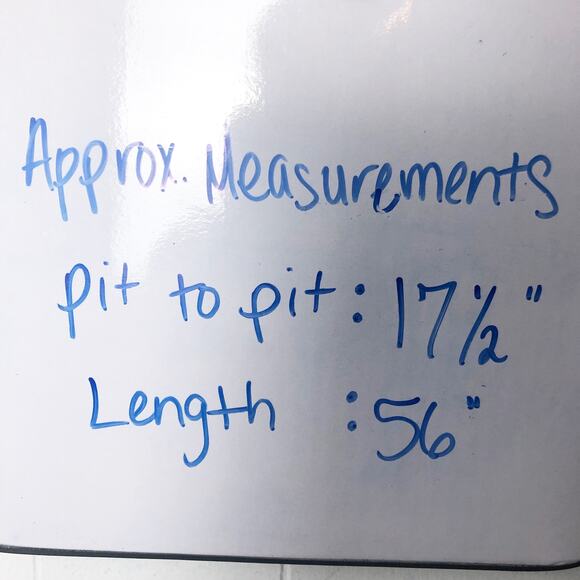 Approx. Measurements
pit to pit: 17 1/2"
Length : 56"